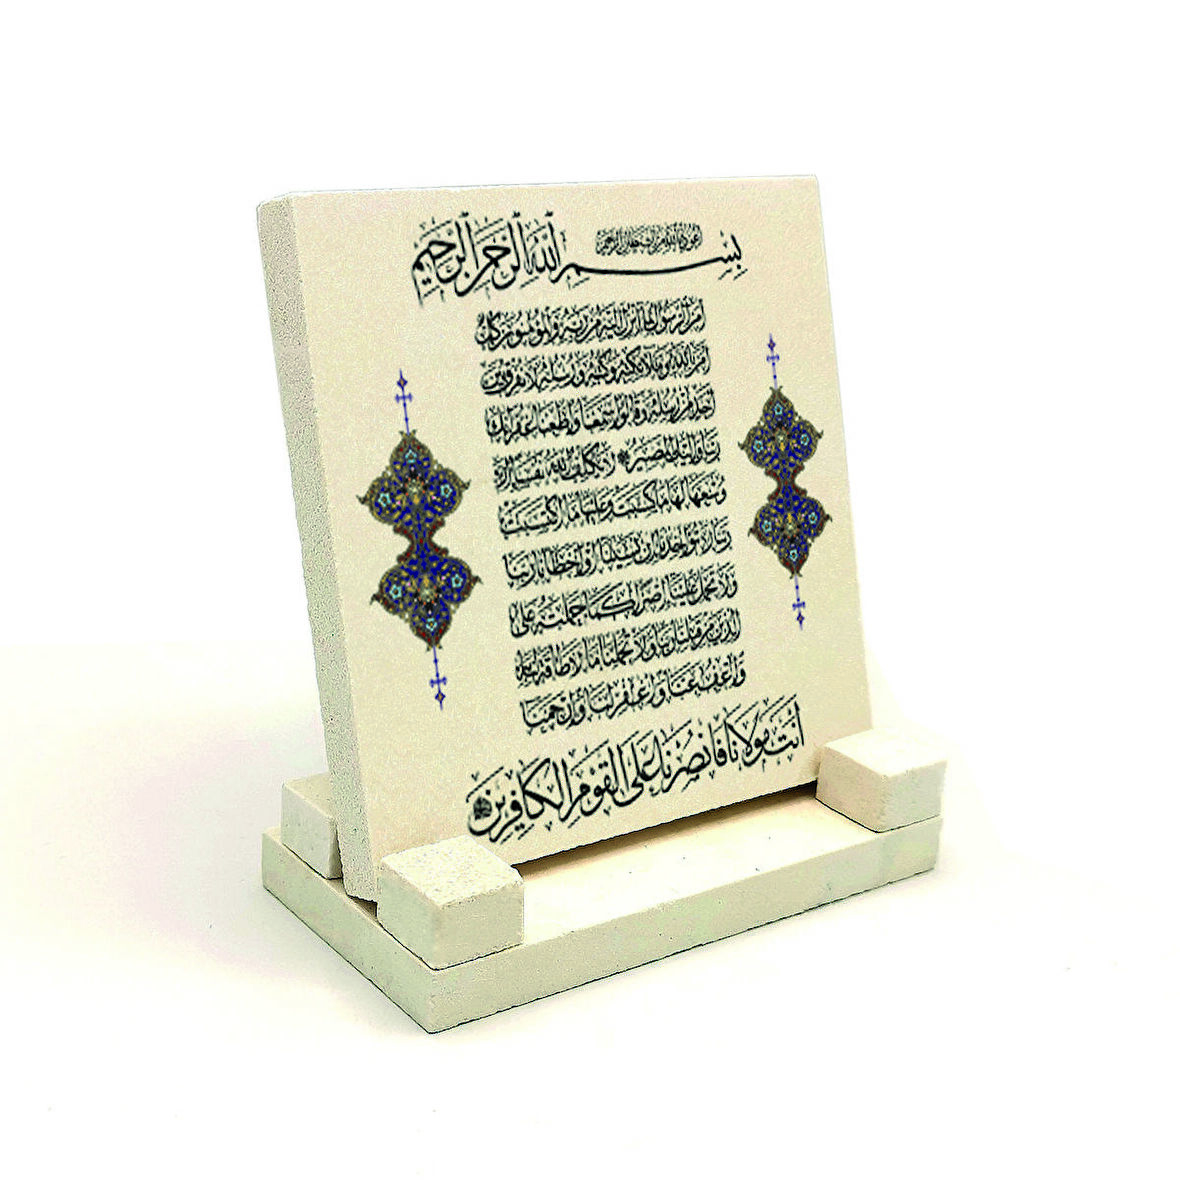 أعوذ بالله من الشيطان الرجيم
بسم الله الرحمن الرحيم
آمن الرسول بما أنزل إليه من ربه والمؤمنون كل
آمن بالله وملائكته وكتبه ورسله لا نفرق بين
أحد من رسله وقالوا سمعنا وأطعنا غفرانك
ربنا وإليك المصير لا يكلف الله نفسا إلا
وسعها لها ما كسبت وعليها ما اكتسبت
ربنا لا تؤاخذنا إن نسينا أو أخطأنا ربنا
ولا تحمل علينا إصرا كما حملته على
الذين من قبلنا ربنا ولا تحملنا ما لا طاقة لنا به
واعف عنا واغفر لنا وارحمنا
أنت مولانا فانصرنا على القوم الكافرين